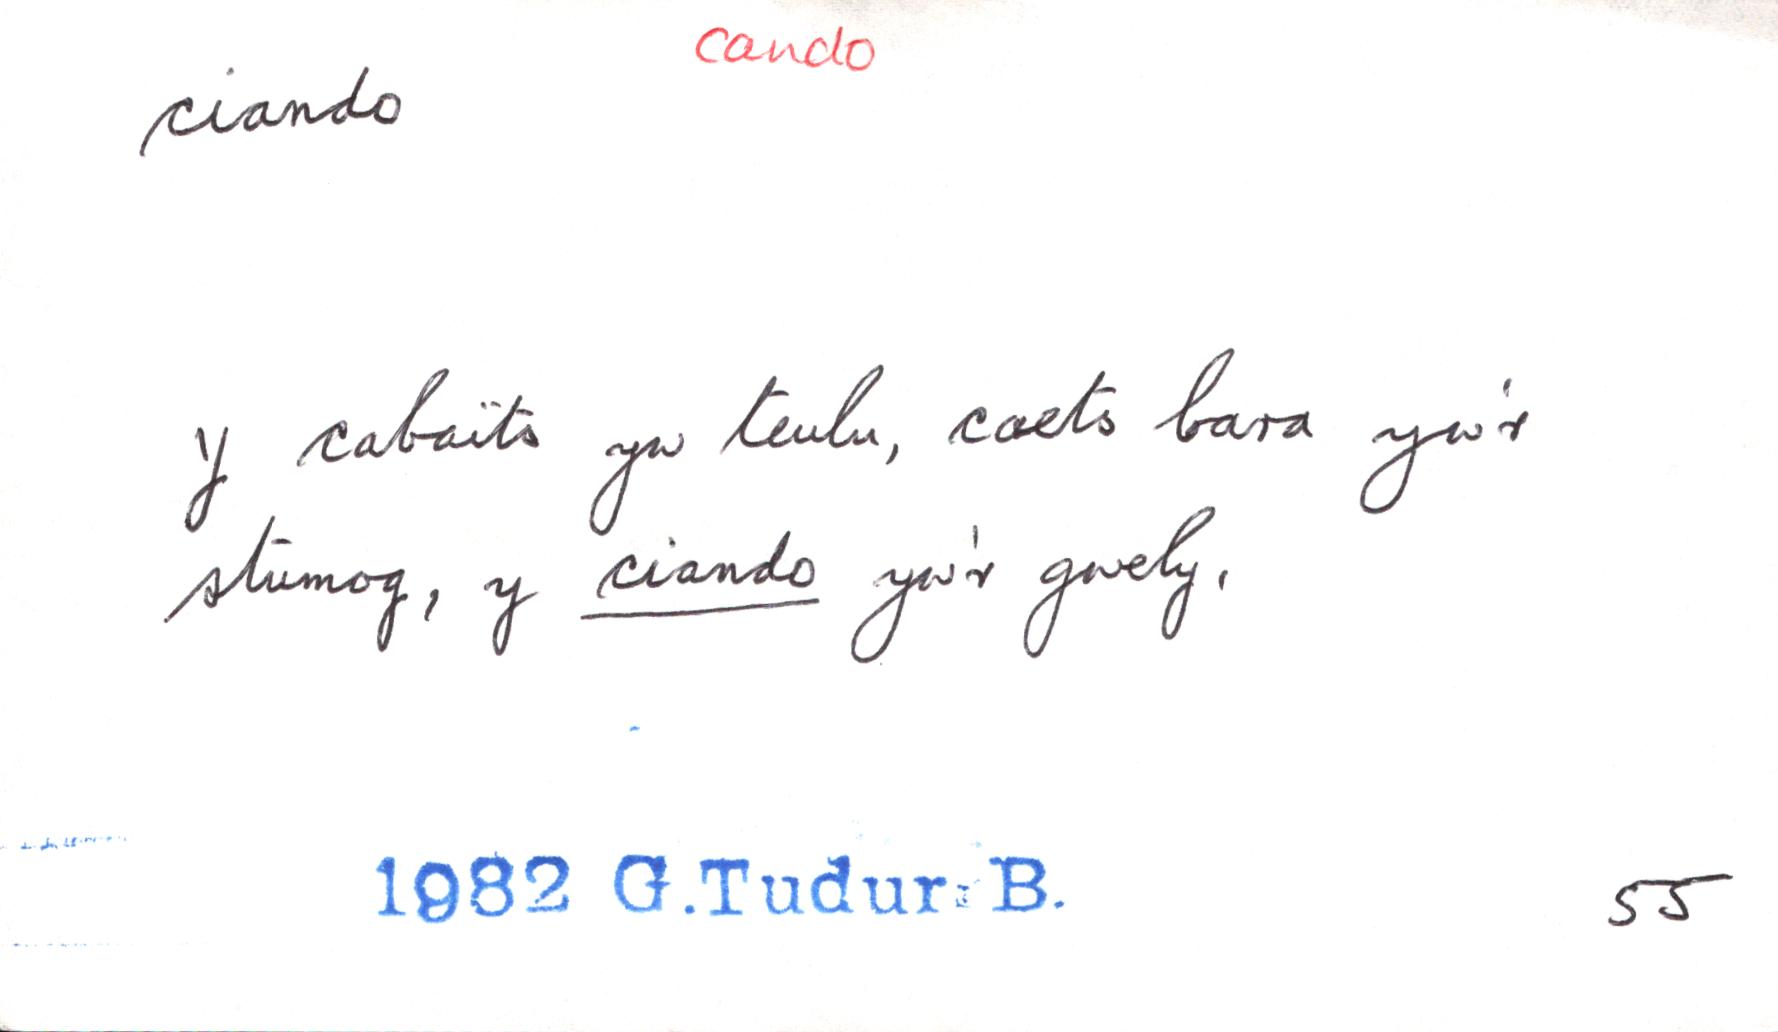 cando
ciando
Y cabaits yw teulu, caets bara yw'r
stumog, y ciando yw'r gwely.
1982 G.Tudur B.
55